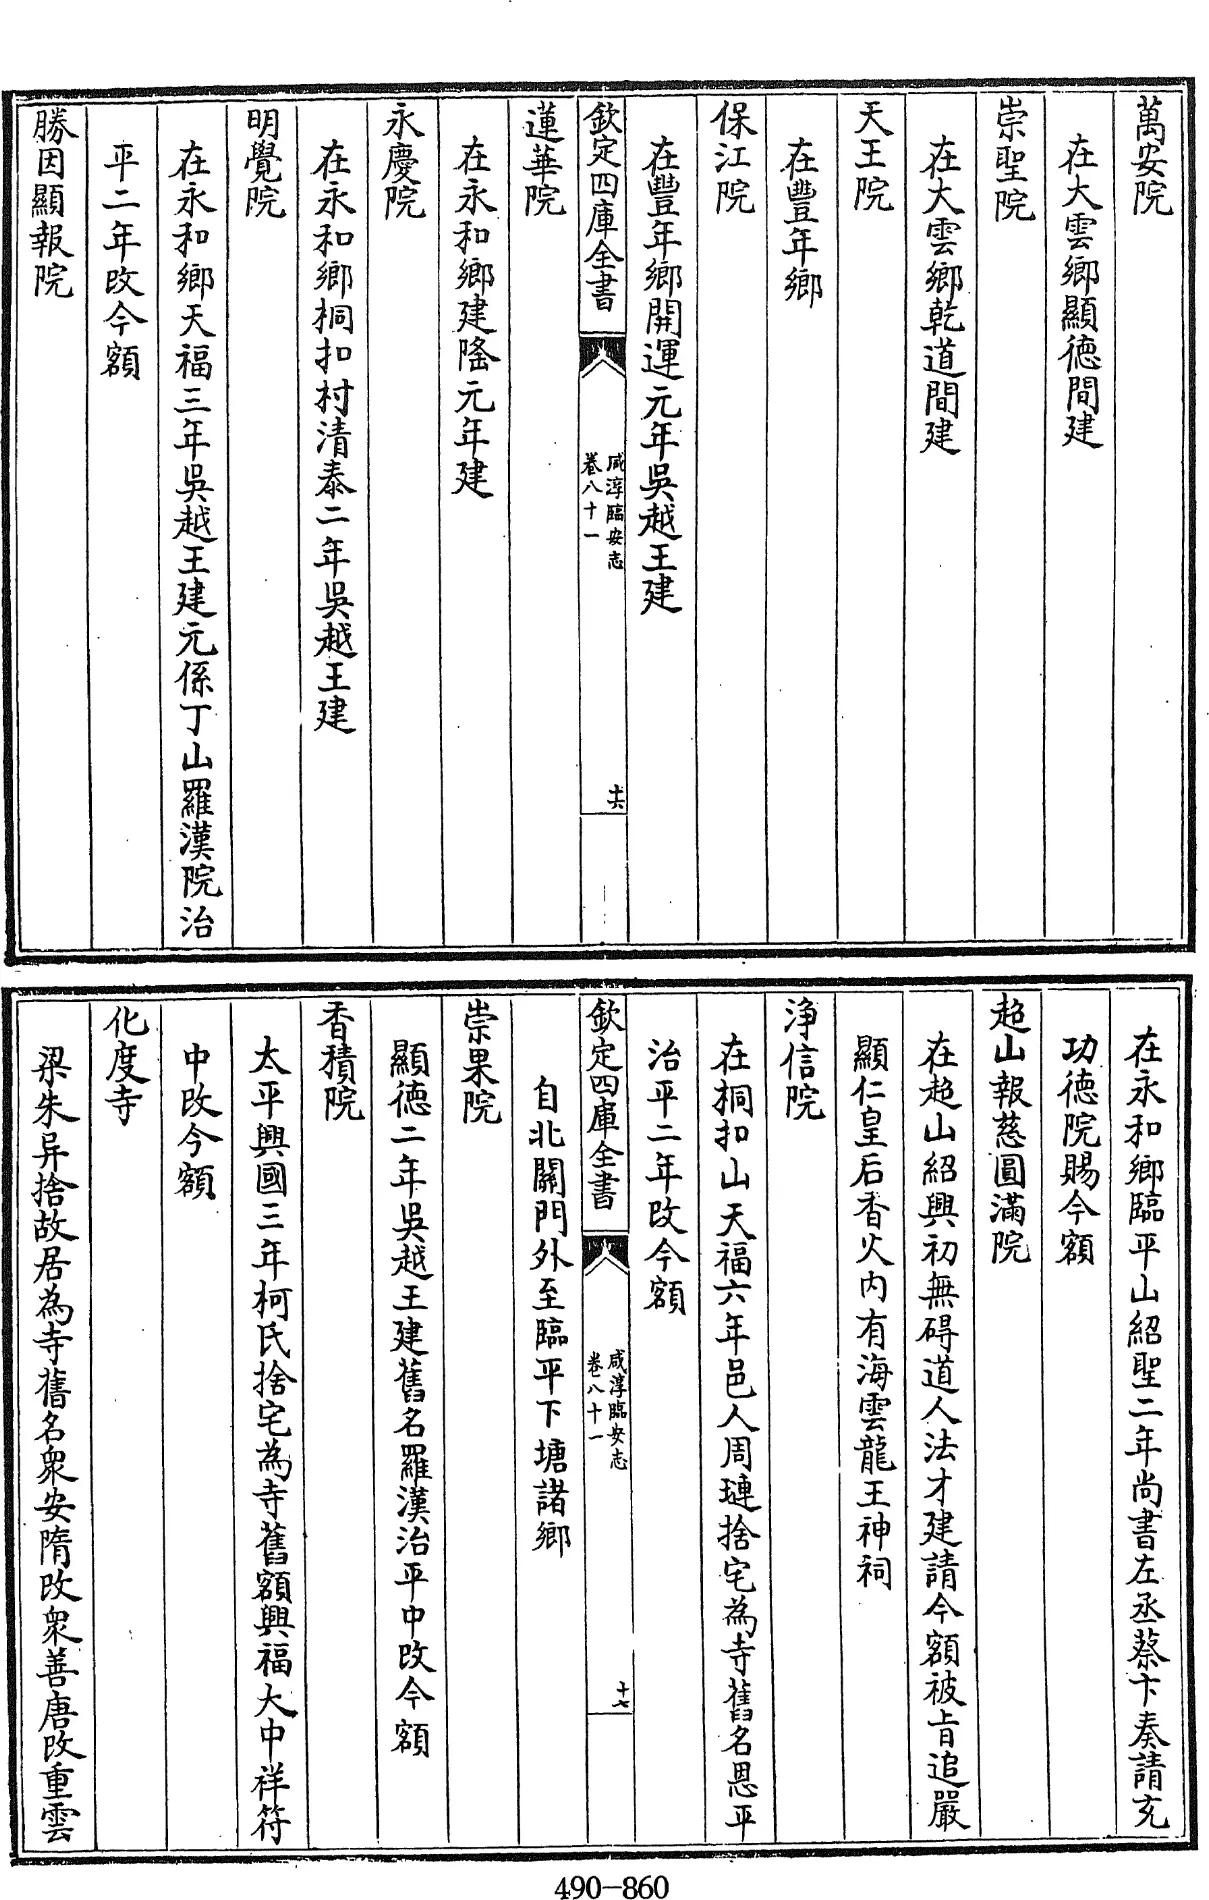 萬安院
在大雲鄉顯徳間建
崇聖院
在大雲鄉乾道間建
天王院
在豐年鄉
保江院
在豐年鄉開運元年吳越王建
欽定四庫全書
咸淳臨安志
卷八十一
十六
蓮華院
在永和鄉建隆元年建
永慶院
在永和鄉桐扣村清泰二年吳越王建
明覺院
在永和鄉天福三年吳越王建元係丁山羅漢院治
平二年改今額
勝因顯報院
在永和鄉臨平山紹聖二年尚書左丞蔡卞奏請充
功徳院賜今額
超山報慈圓滿院
在超山紹興初無碍道人法才建請今額被旨追嚴
顯仁皇后香火内有海雲龍王神祠
淨信院
在桐扣山天福六年邑人周璉捨宅為寺舊名恩平
治平二年改今額
欽定四庫全書
咸淳臨安志
卷八十一
十七
自北關門外至臨平下塘諸鄉
崇果院
顯徳二年吳越王建舊名羅漢治平中改今額
香積院
太平興國三年柯氏捨宅為寺舊額興福大中祥符
中改今額
化度寺
梁朱异捨故居為寺舊名衆安隋改衆善唐改重雲
490-860